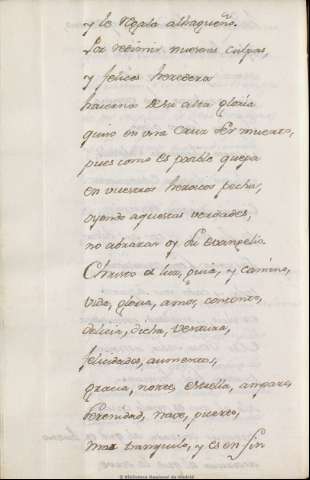 y le Regala al dagueño.
Por redimir nuestras culpas,
y felices heredera
hacernos de su alta gloria
quiso en una Cruz ser muerto,
pues como es posible quepa
en vuestros heroicos pechos,
oyendo aquestas verdades,
no abrazar oy su evangelio.
Christo es luz, guia, y camino,
vida, gloria, amor, consuelo,
delicia, dicha, ventura,
felicidades, aumentos,
gracia, norte, estrella, amparo,
serenidad, nave, puerto,
mar tranquilo, y es en fin
© Biblioteca Nacional de Madrid